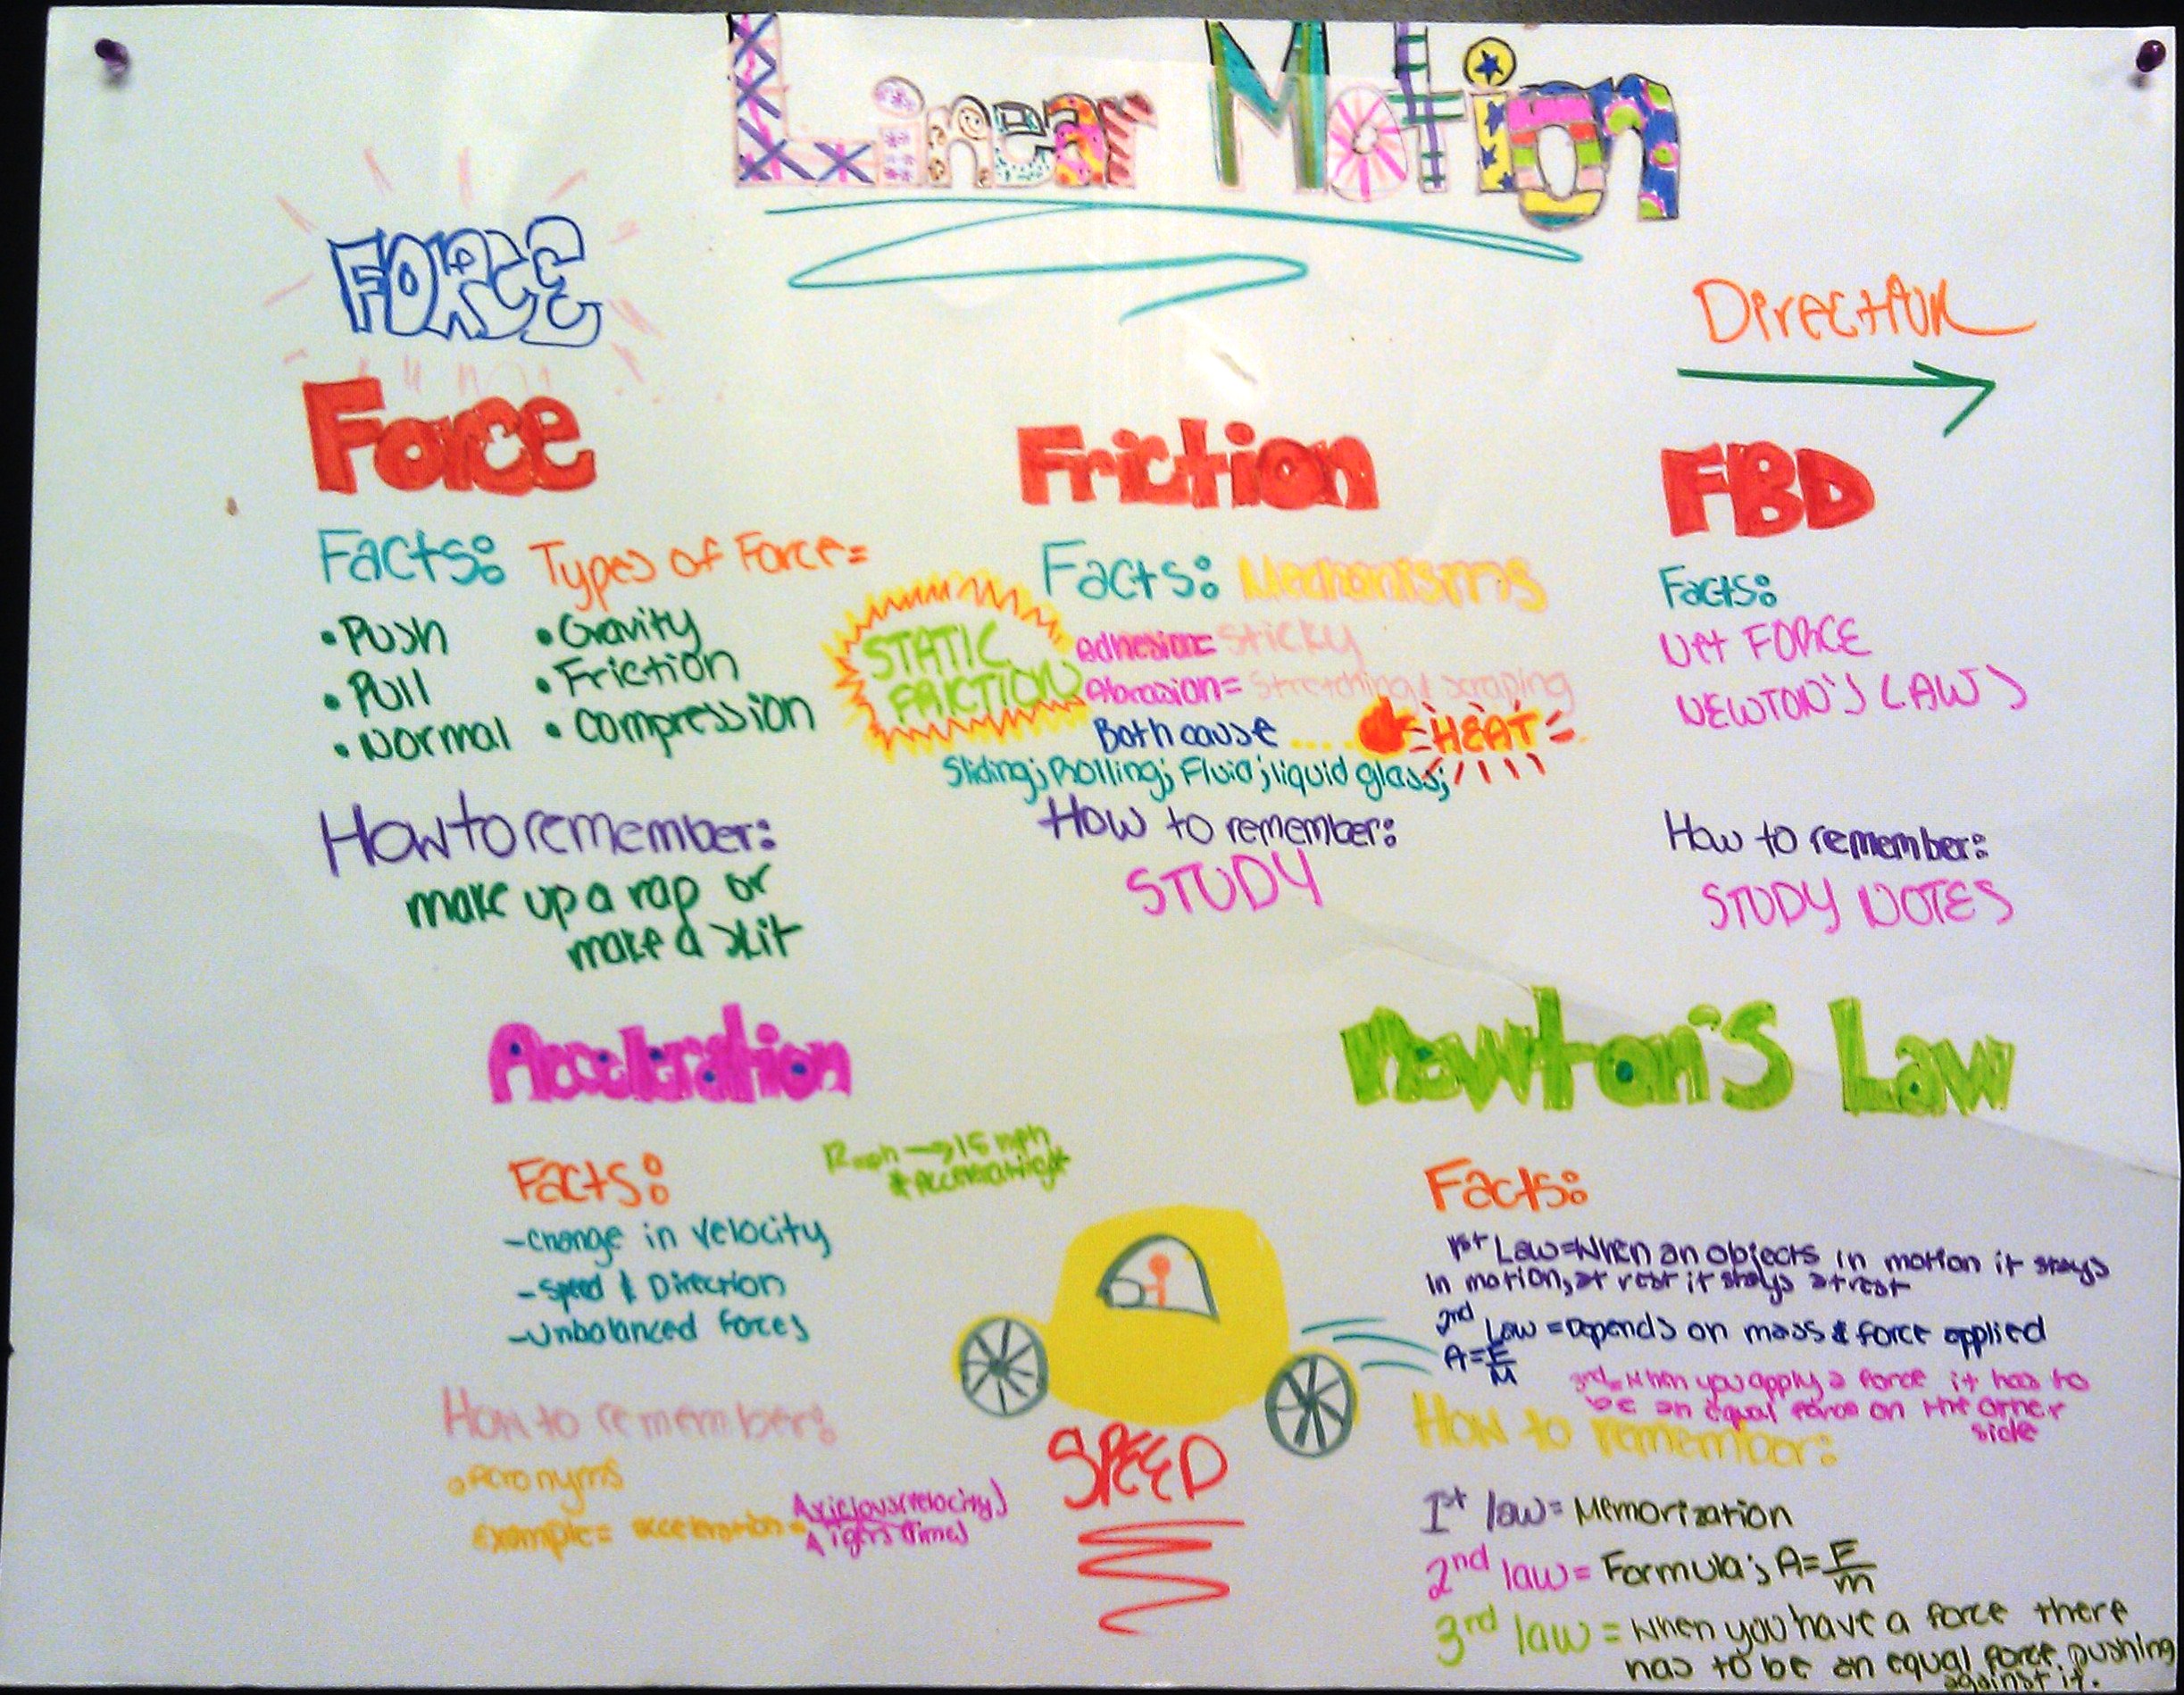 Linear Motion
FORCE
Direction
Force
Facts: Types of Force=
• Push
• Pull
• Normal
• Gravity
• Friction
• Compression
How to remember:
make up a rap or
make a skit
Friction
Facts: Mechanisms
STATIC
FRICTION
Adhesion= Sticky
Abrasion= Stretching & scraping
Both cause .... HEAT
Sliding; Rolling; Fluid; liquid glass;
How to remember:
STUDY
FBD
Facts:
Net FORCE
NEWTON'S LAWS
How to remember:
STUDY NOTES
Acceleration
Facts:
-change in velocity
-speed & Direction
-unbalanced forces
12 mph → 15 mph
*Accelerating*
How to remember:
• Acronyms
Example= acceleration=
A vicious (velocity)
A tigers (time)
SPEED
Newton's Law
Facts:
1st Law=When an objects in motion it stays
in motion, at rest it stays at rest
2nd Law =Depends on mass & force applied
A=F/M
3rd= When you apply a force it has to
be an equal force on the other
side
How to remember:
1st law= Memorization
2nd law= Formula; A=F/m
3rd law = When you have a force there
has to be an equal force pushing
against it.